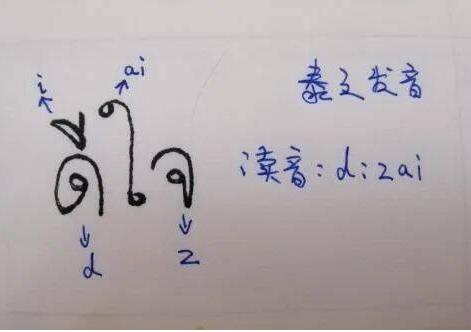 i ai
ดีใจ
d z
泰文发音
读音: di:zai